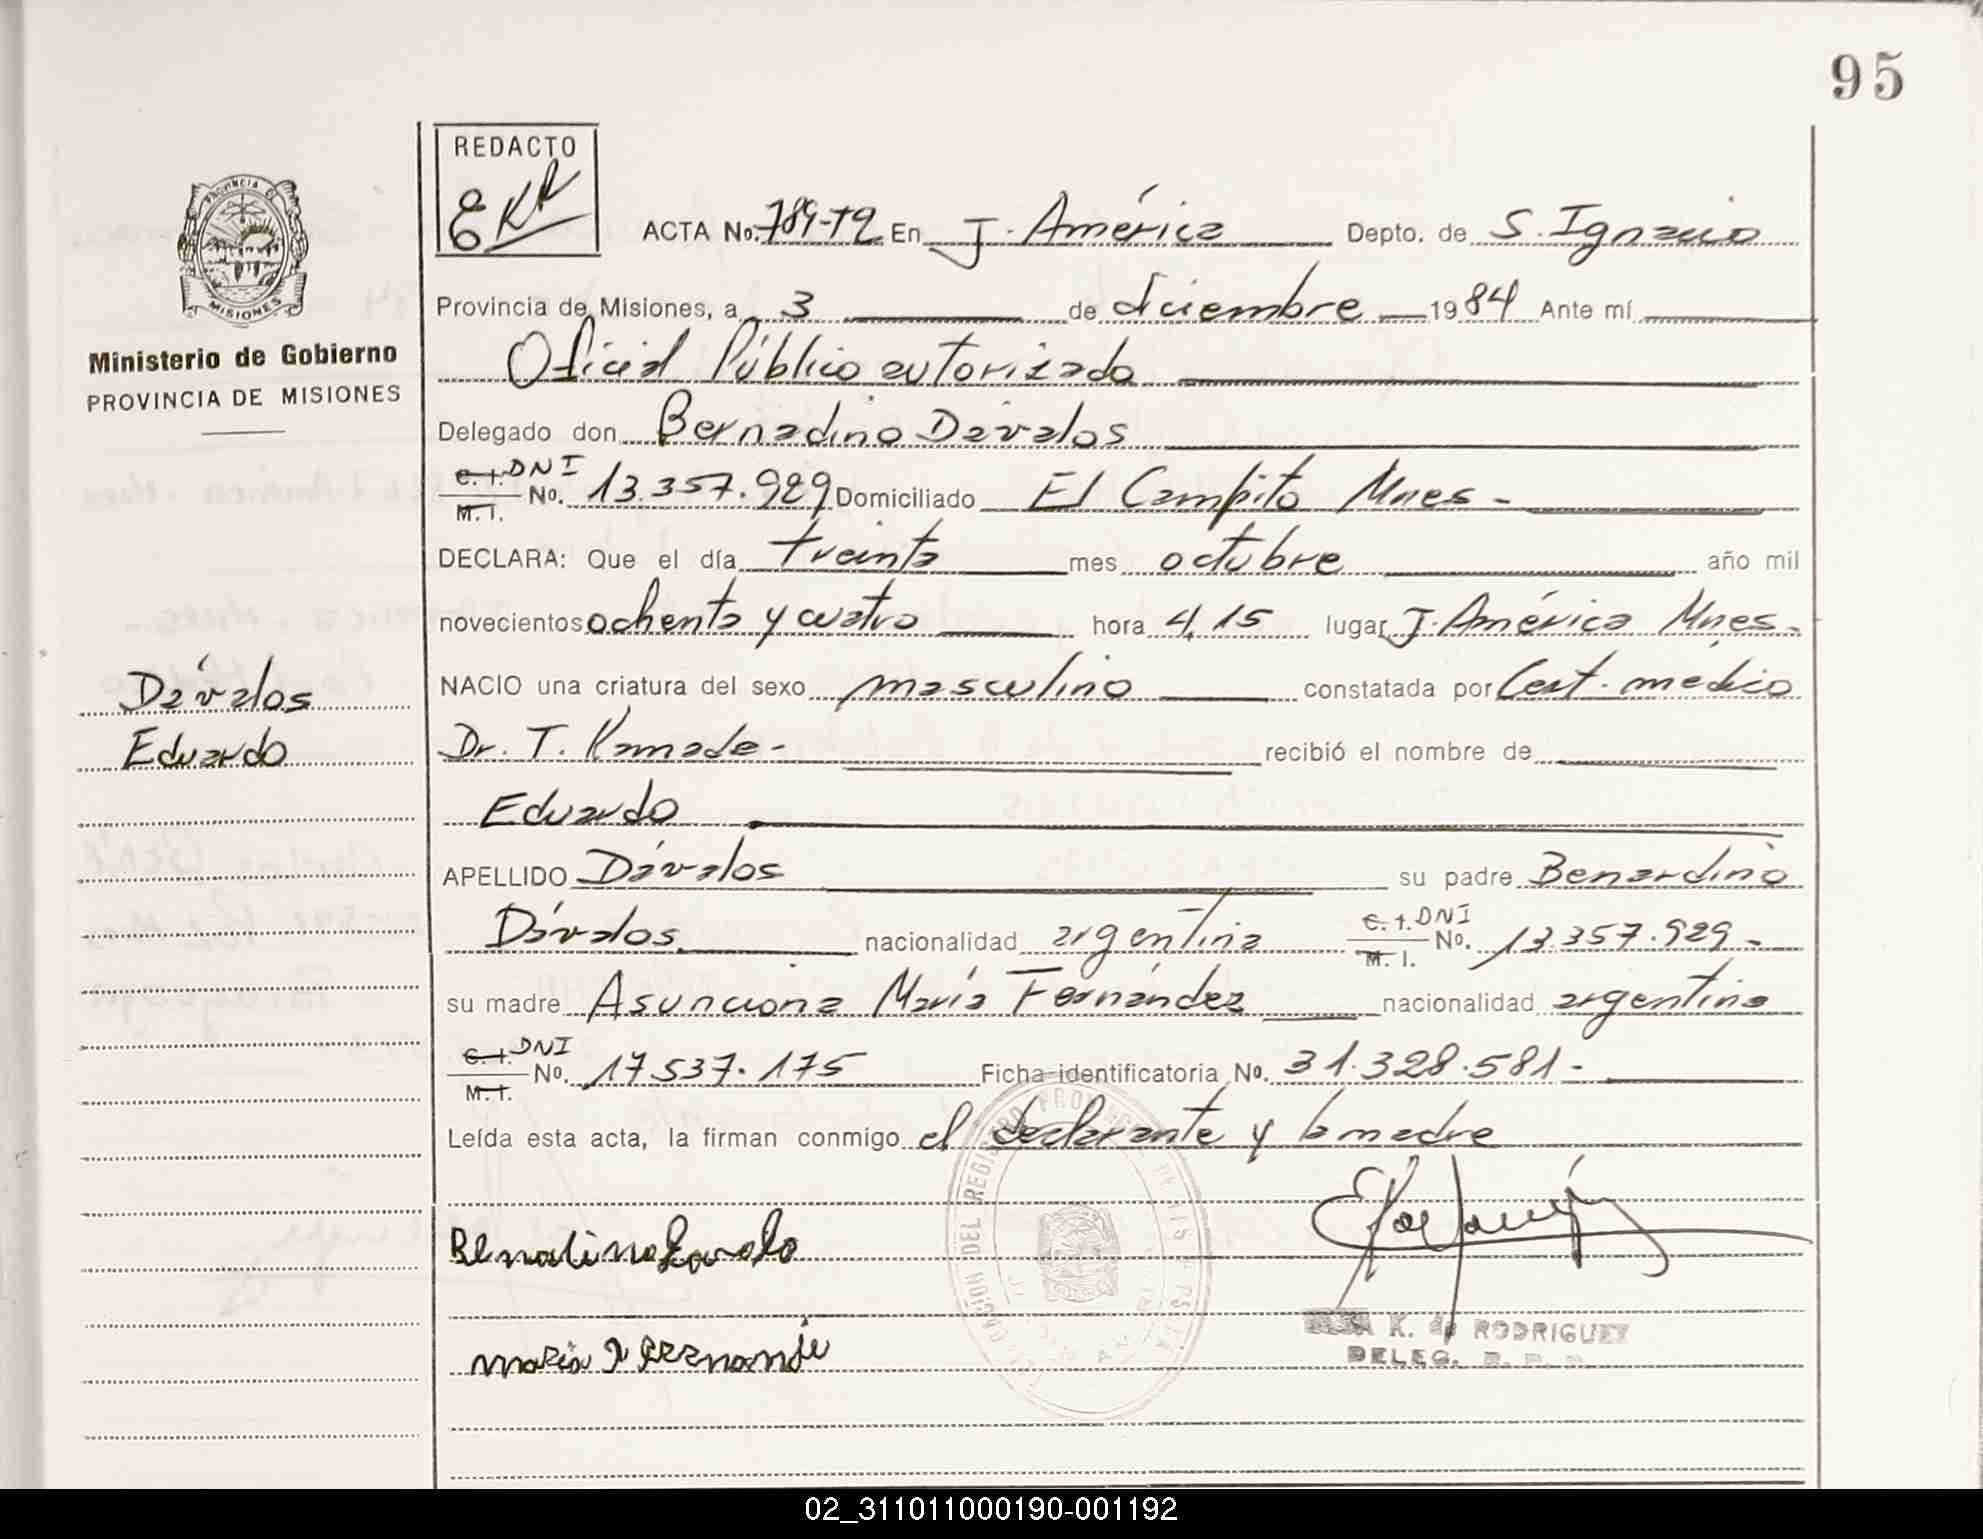 95
REDACTO
EKR
ACTA No. 789-T2 En J. América Depto. de S. Ignacio
Provincia de Misiones, a 3 de diciembre 1984 Ante mí
Oficial Público autorizado
Ministerio de Gobierno
PROVINCIA DE MISIONES
Delegado don Bernadino Dávalos
C. I. DNI
M. I. No. 13.357.929 Domiciliado El Campito Mnes -
DECLARA: Que el día treinta mes octubre año mil
novecientos ochenta y cuatro hora 4,15 lugar J. América Mnes.
Dávalos
NACIO una criatura del sexo masculino constatada por Cert. médico
Eduardo
Dr. T. Kamada - recibió el nombre de
Eduardo
APELLIDO Dávalos su padre Benardino
Dávalos nacionalidad argentina C. I. DNI M. I. No. 13.357.929 -
su madre Asunciona María Fernández nacionalidad argentina
C. I. DNI
M. I. No. 17.537.175 Ficha identificatoria No. 31.328.581 -
Leída esta acta, la firman conmigo el declarante y la madre
K. de RODRIGUEZ
DELEG.
02_311011000190-001192